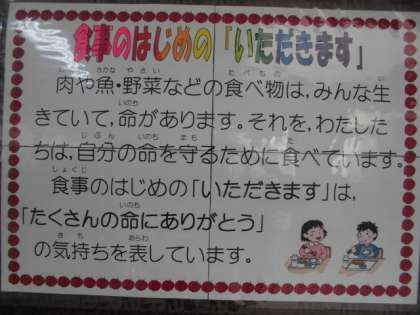 食事のはじめの「いただきます」
肉や魚・野菜などの食べ物は,みんな生
きていて,命があります。それを,わたした
ちは,自分の命を守るために食べています。
食事のはじめの「いただきます」は,
「たくさんの命にありがとう」
の気持ちを表しています。